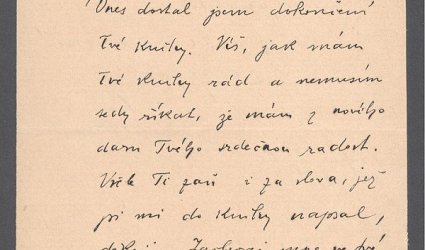 Dnes dostal jsem dokončení
Tvé Knihy. Víš, jak mám
Tvé Knihy rád a nemusím
tedy říkat, že mám z nového
daru Tvého srdečnou radost.
Vřele Ti za ni i za slova, jež
jsi mi do Knihy napsal,
děkuji. Zachovej mne ve své